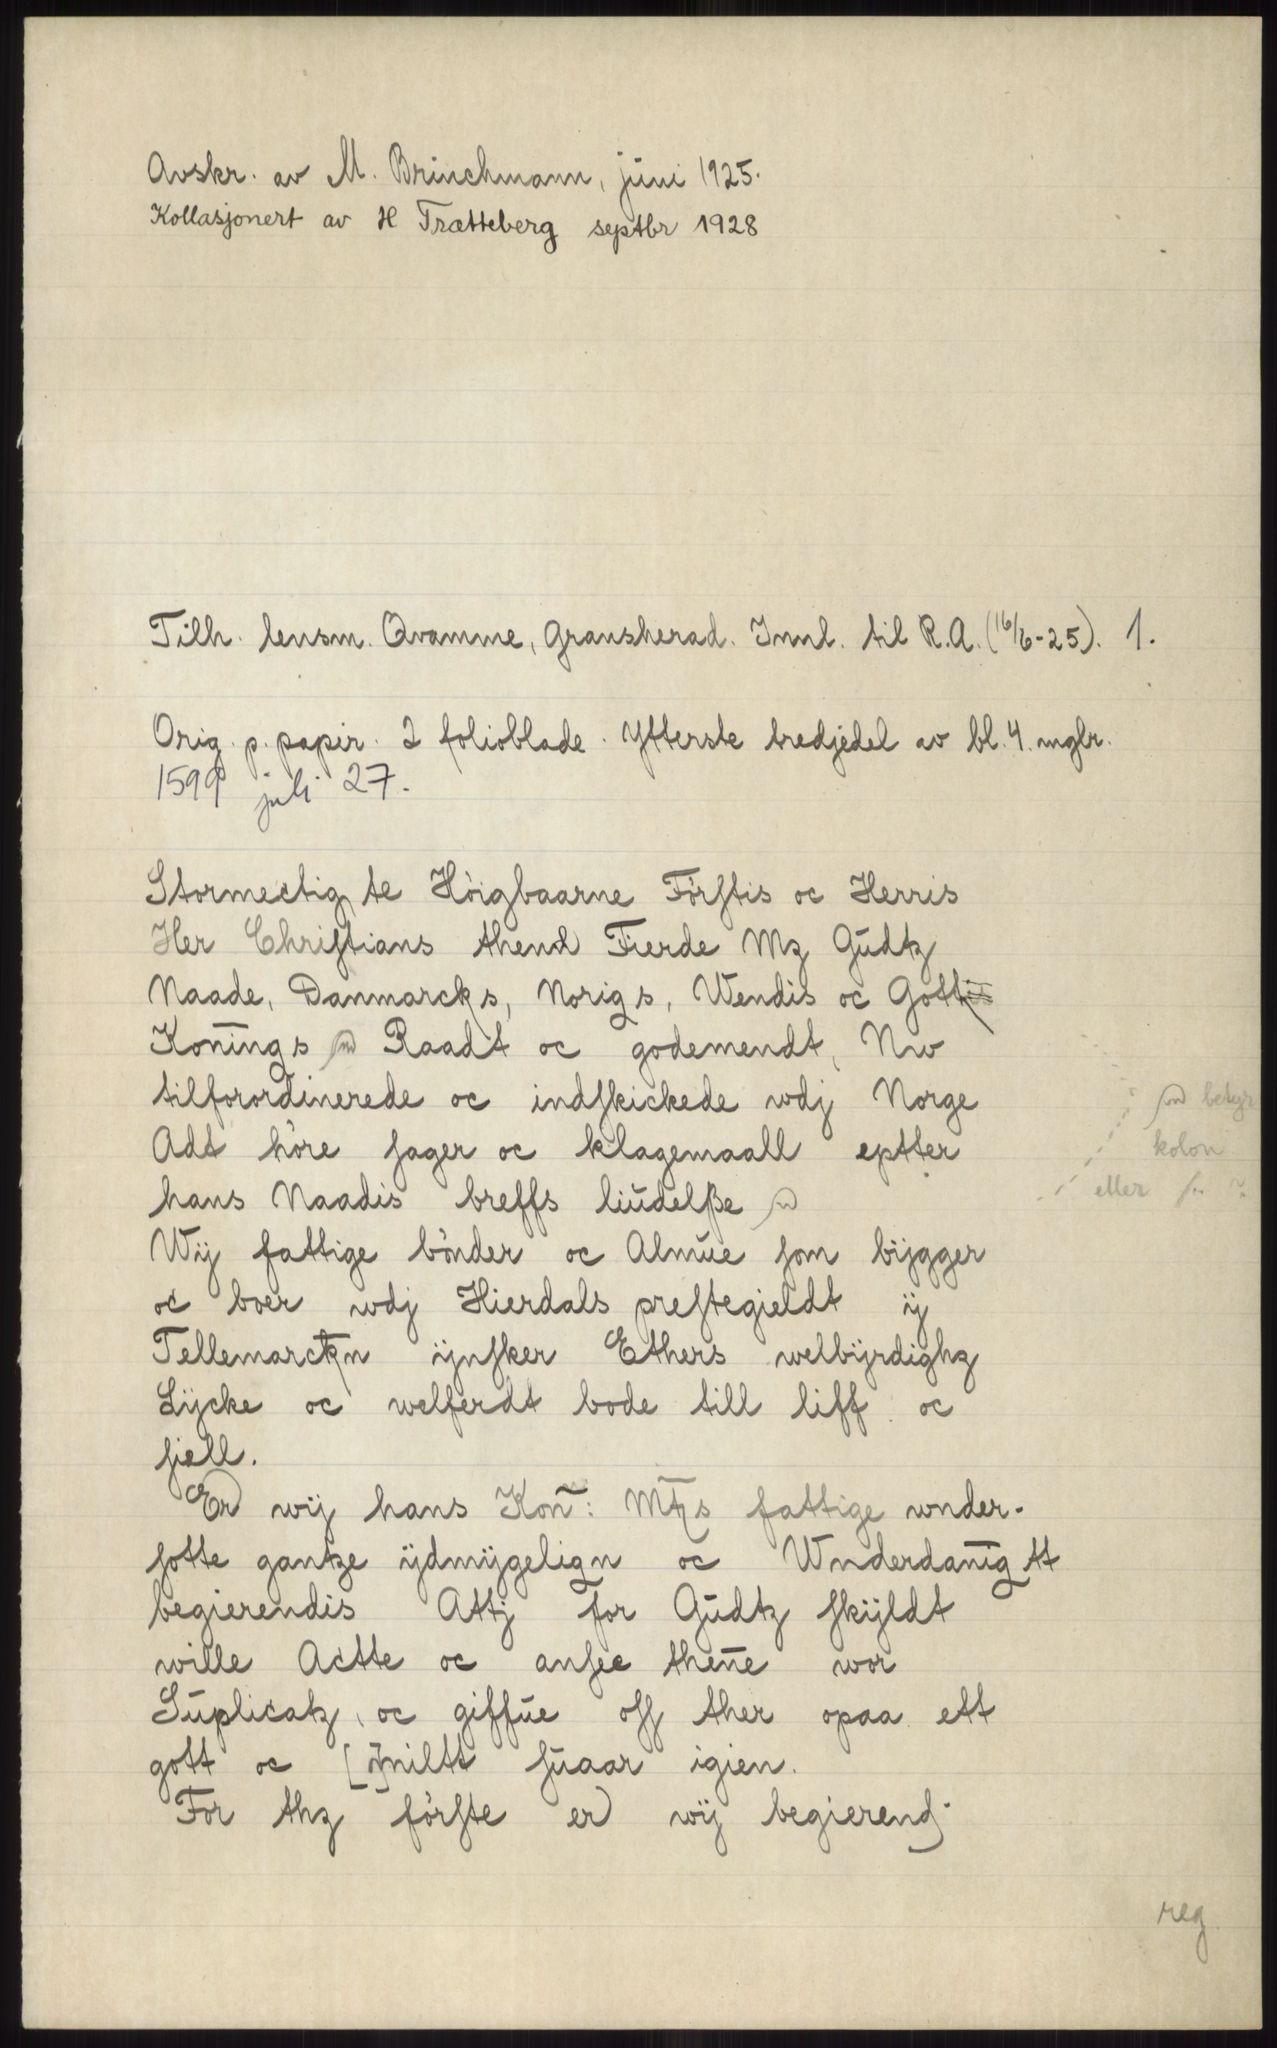 Avskr. av M. Brinchmann, juni 1925.
Kollasjonert av H Trætteberg septbr 1928
Tilh. lensm. Qvamme, Gransherad. Innl. til R.A. (16/6-25). 1.
Orig. p. papir. 2 folioblade. Ytterste tredjedel av bl. 4. mglr.
1599 juli 27.
Stormectigste Höigbaarne Förſtis oc Herris
Her Chriſtians thend Fierde Mz Gŭdtz
Naade, Danmarcks, Norigs, Wendis oc Gottis
Konings Raadt oc godemendt, Nw
tilforordinerede oc indſkickede wdj Norge
Adt höre ſager oc klagemaall eptter
hans Naadis breffs liŭdelße
Wij fattige bönder oc Almŭe ſom bijgger
oc boer wdj Hierdals preſtegieldt ij
Tellemarckn ijnſker Ethers welbijrdighz
Lijcke oc welferdt bode till liff oc
ſiell.
Er wij hans Kon̄: Mtz fattige wnder-
ſotte gantze ijdmijgelign oc Wnderdanigtt
begierendis Attj for Gŭdtz ſkijldt
wille Actte oc anſee then̄e wor
Sŭplicatz, oc giffŭe oſſ ther opaa ett
gott oc [m]iltt ſŭaar igien.
For thz förſte er wij begierend
betyr
kolon
eller
reg